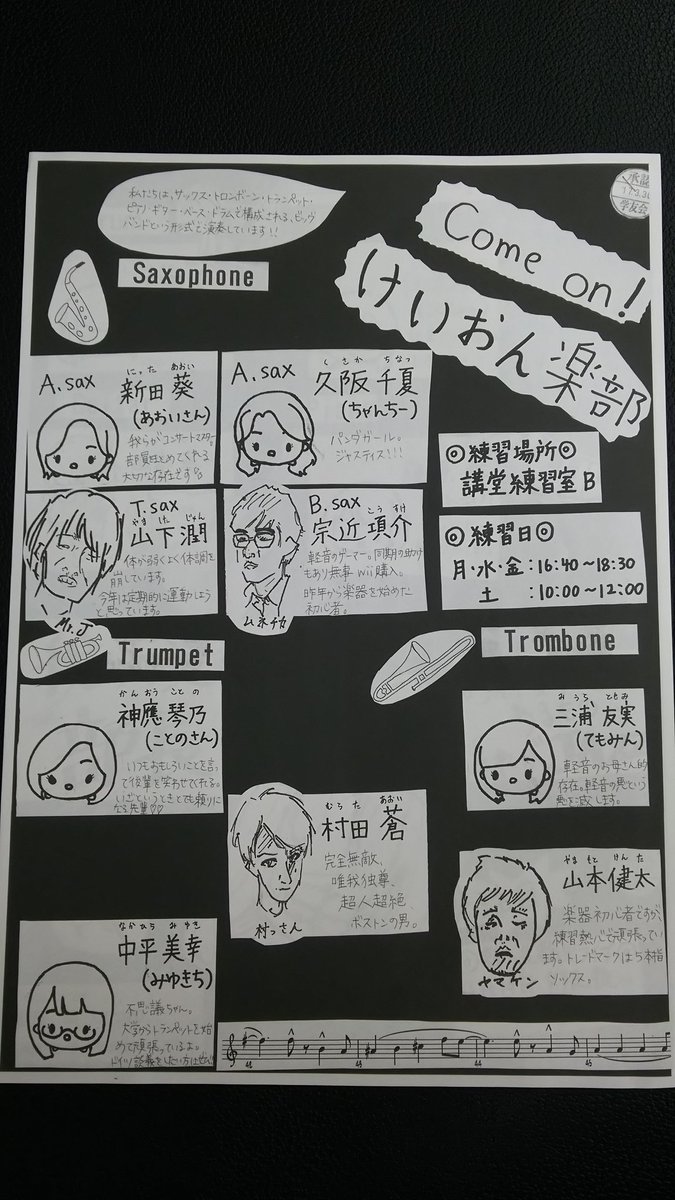 私たちは、サックス・トロンボーン・トランペット・
ピアノ・ギター・ベース・ドラムで構成される、ビッグ
バンドという形式で演奏しています!!
承認
学友会
Come on!
けいおん楽部
Saxophone
A.sax
にった あおい
新田 葵
(あおいさん)
我らがコンサートマスター。
部員をまとめてくれる
大切な存在です
A.sax
くさか ちなつ
久阪 千夏
(ちゃんちー)
パンダガール。
ジャスティス!!!
◎練習場所◎
講堂練習室B
T.sax
やました じゅん
山下 潤
体が弱くよく体調を
崩しています。
今年は定期的に運動しよう
と思っています。
Mr.J
B.sax
こうすけ
宗近 項介
軽音のゲーマー。同期の助け
もあり無事Wii購入。
昨年から楽器を始めた
初心者。
ムネチカ
◎練習日◎
月・水・金:16:40~18:30
土 :10:00~12:00
Trumpet
Trombone
かんおう ことの
神應 琴乃
(ことのさん)
いつもおもしろいことを言っ
て後輩を笑わせてくれる。
いざというときとても頼りに
なる先輩♡♡
みうら ともみ
三浦 友実
(てもみん)
軽音のお母さん的
存在。軽音の悪という
悪を滅します。
むらた あおい
村田 蒼
完全無敵、
唯我独尊、
超人超絶、
ボストンの男。
村っさん
やまもと けんた
山本 健太
楽器初心者ですが、
練習熱心で頑張ってい
ます。トレードマークは5本指
ソックス。
ヤマケン
なかひら みゆき
中平 美幸
(みゆきち)
不思議ちゃん。
大学からトランペットを始
めて頑張っているよ。
ドイツ談義をしたい方は
43
44
45